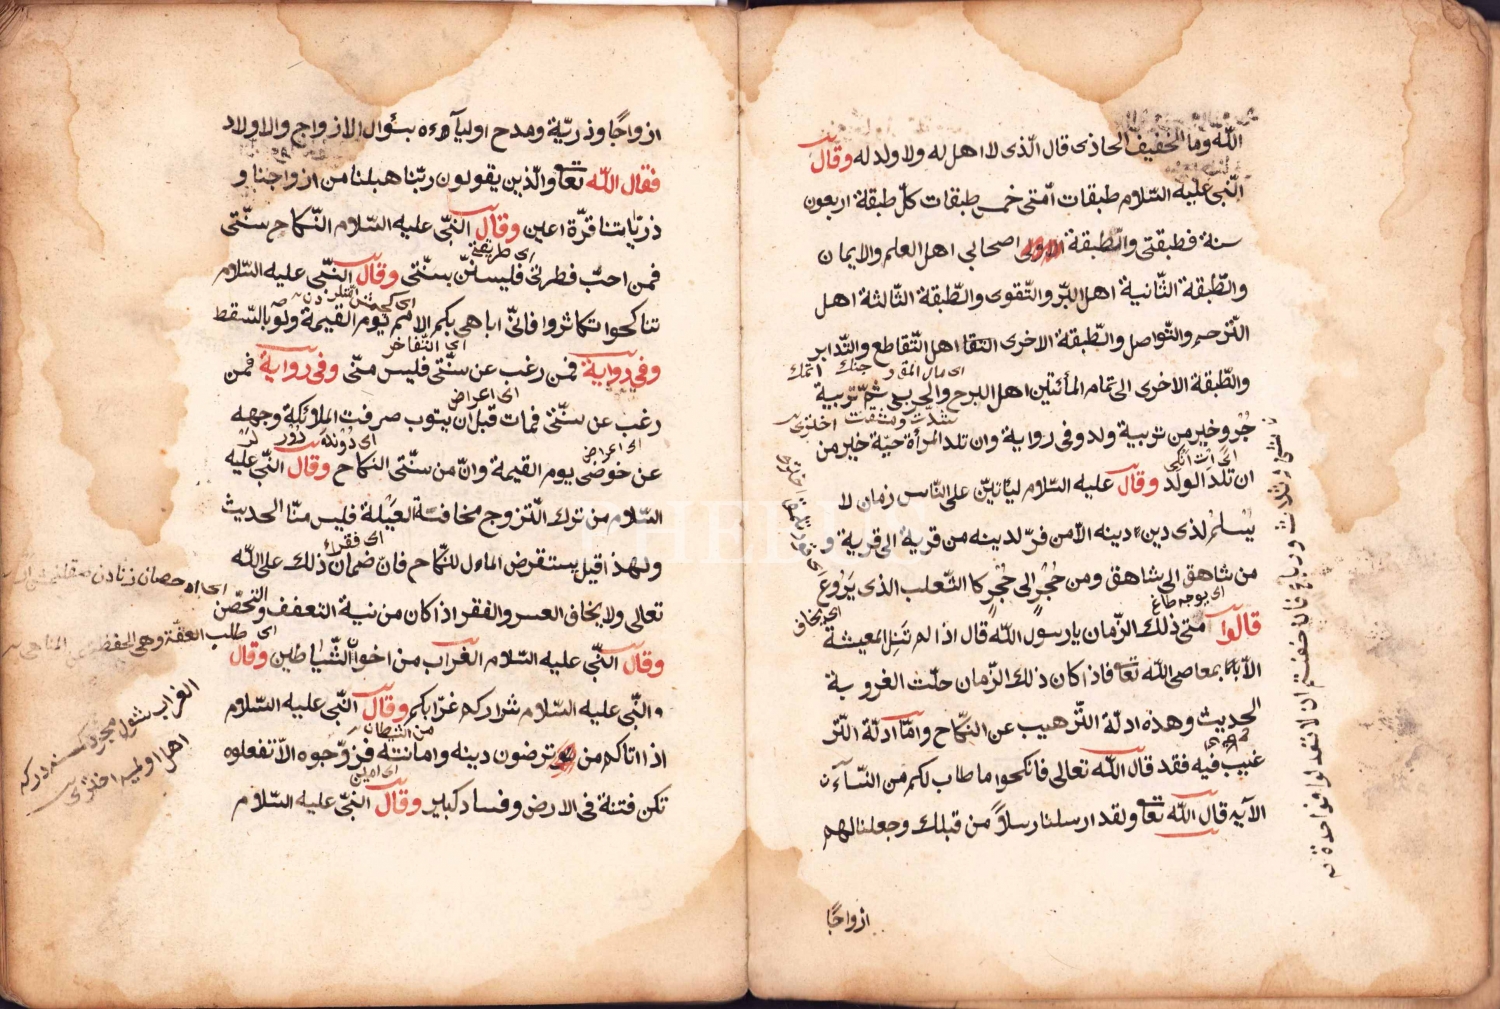 الله وما الخفيف الحاذى قال الّذى لا اهل له ولا ولد له وقال
النّبى عليه السّلام طبقات امّتى خمس طبقات كلّ طبقة اربعون
سنة فطبقتى والطّبقة الاولى اصحابى اهل العلم والايمان
والطّبقة الثّانية اهل البرّ والتّقوى والطّبقة الثّالثة اهل
التّرحم والتّواصل والطّبقة الاخرى اهل التّقاطع والتّدابر
والطّبقة الاخرى الى تمام المأتين اهل الهرج والحرب ثمّ تربية
جُرو خير من تربية ولد وفى رواية وان تلد المرأة حيّة خير من
ان تلد الولد وقال عليه السّلام ليأتينّ على النّاس زمان لا
يُسْلم لذى دين دينه الاّ من فرّ لدينه من قرية الى قرية و
من شاهق الى شاهق ومن حُجْر الى حُجْر كا الثّعلب الذى يَرُوغ
قالوا متى ذلك الزّمان يا رسول الله قال اذا لم تَنِل المعيشة
الاّ بمعاصى الله تعا فاذا كان ذلك الزّمان حلّت العزوبة
الحديث وهذه ادلّة التّرهيب عن النّكاح وامّا ادلّة التّر
غيب فيه فقد قال الله تعالى فانكحوا ما طاب لكم من النّساء
الآيه قال الله تعا ولقد ارسلنا رسلاً من قبلك وجعلنا لهم
ازواجًا
ازواجًا وذريّة ومدح اولياءه بسؤال الازواج والاولاد
فقال الله تعا والّذين يقولون ربّنا هب لنا من ازواجنا و
ذرّيّاتنا قرّة اعين وقال النبّى عليه السّلام النّكاح سنّتى
اى طريقتى
فمن احبّ فطرتى فليستنّ بسنّتى وقال النّبى عليه السّلام
تناكحوا تكاثروا فانّى اباهى بكم الامم يوم القيمة ولو بالسّقط
اى التّفاخر
وفى رواية فمن رغب عن سنّتى فليس منّى وفى رواية فمن
اى اعراض
رغب عن سنّتى فمات قبل ان يتوب صرفت الملائكة وجهه
عن حوضى يوم القيمة وانّ من سنّتى النكاح وقال النّبى عليه
السّلام من ترك التّزوج مخافة العَيْلة فليس منّا الحديث
اى فقراء
ولهذا قيل يستقرض المال للنّكاح فانّ ضمان ذلك على الله
تعالى ولا يخاف العسر والفقر اذا كان من نية التعفف والتّحصّن
وقال النّبى عليه السّلام العزاب من اخوان الشّياطين وقال
النّبى عليه السّلام شراركم عزّابكم وقال النّبى عليه السّلام
من الشيطان
اذا اتاكم من ترضون دينه وامانته فزوّجوه الاّ تفعلوه
تكن فتنة فى الارض وفساد كبير وقال النبّى عليه السّلام